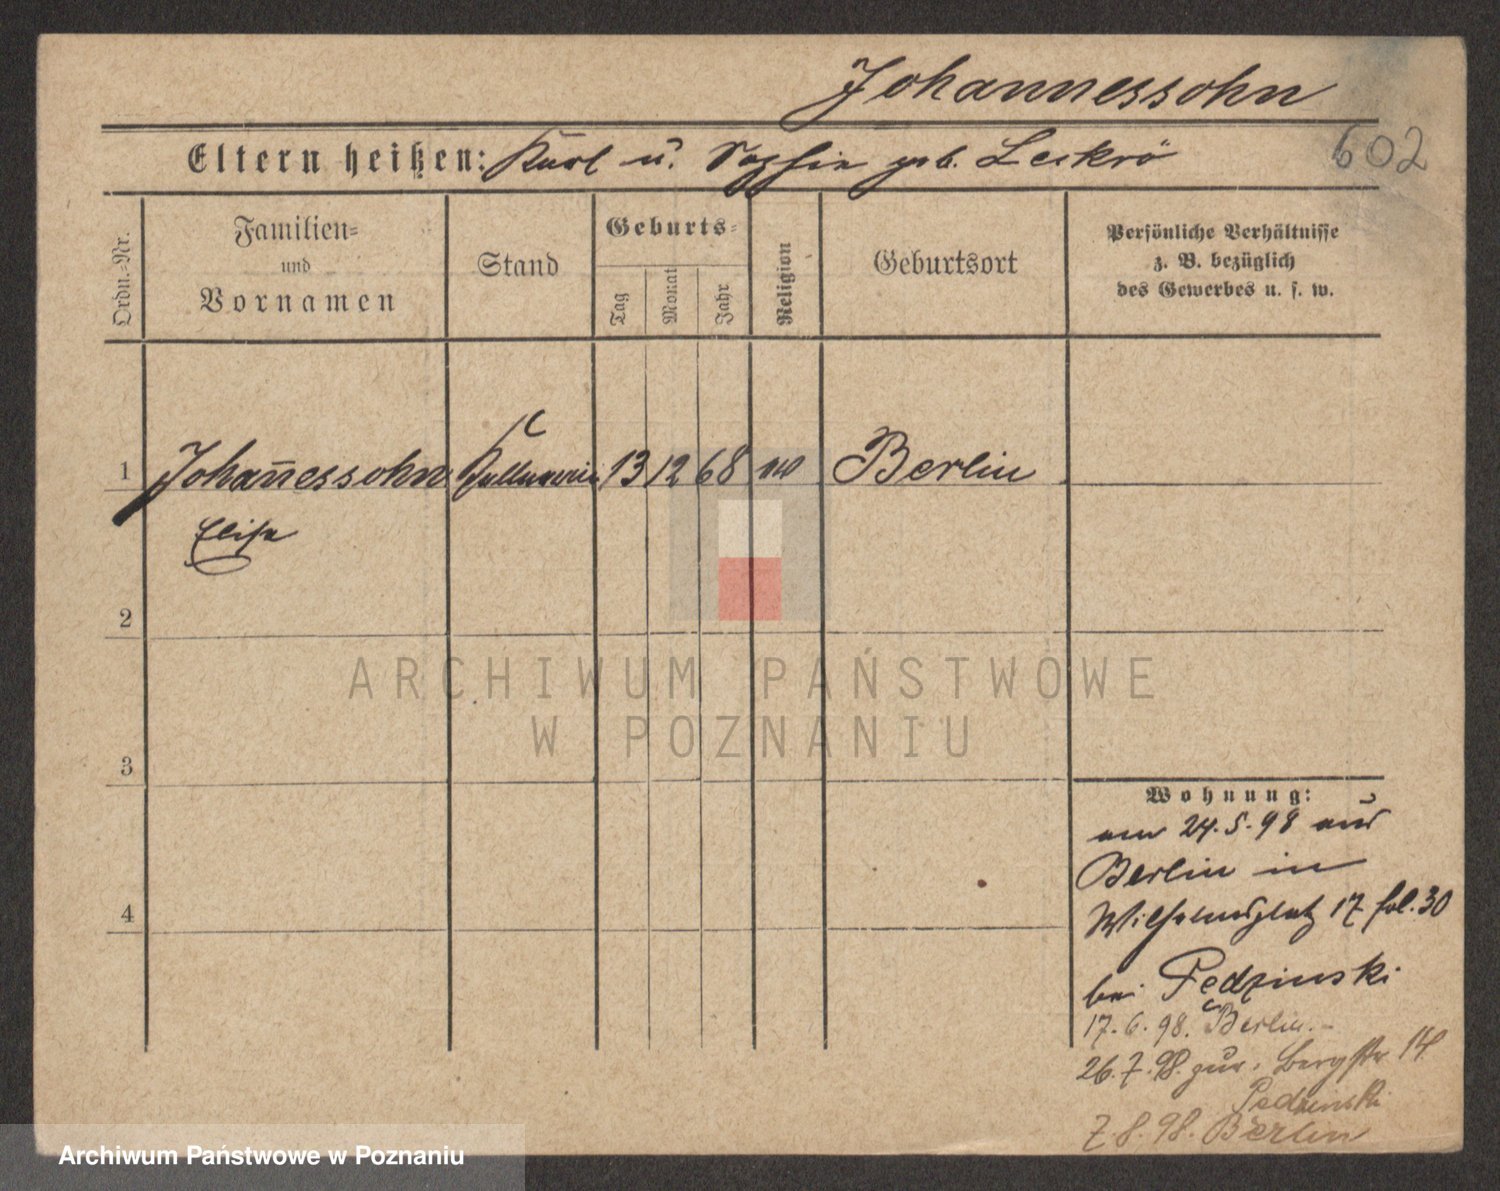 Johannessohn
602
Eltern heißen: Karl u. Sophie geb. Leskró
Ordn.-Nr.
Familien-
und
Vornamen
Stand
Geburts-
Tag
Monat
Jahr
Religion
Geburtsort
Persönliche Verhältnisse
z. B. bezüglich
des Gewerbes u. s. w.
1 Johan̄essohn Kellnerin 13 12 68 Berlin
Elise
2
3
4
Wohnung:
am 24.5.98 aus
Berlin in
Wilhelmsplatz 17 fol. 30
bei Pedzinski
17.6.98. Berlin.-
26.7.98. zur. Bergstr. 14
Pedzinski
7.8.98. Berlin
ARCHIWUM PAŃSTWOWE
W POZNANIU
Archiwum Państwowe w Poznaniu